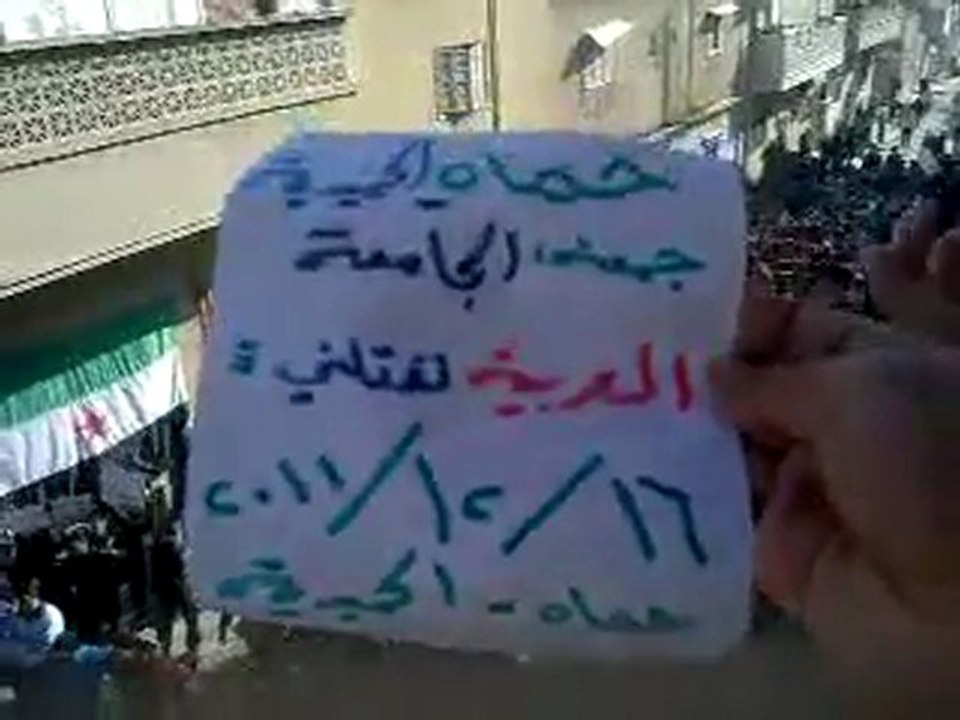 حماه الحميدية
جمعة الجامعة
العربية تقتلني
١٦/١٢/٢٠١١
حماه - الحميدية